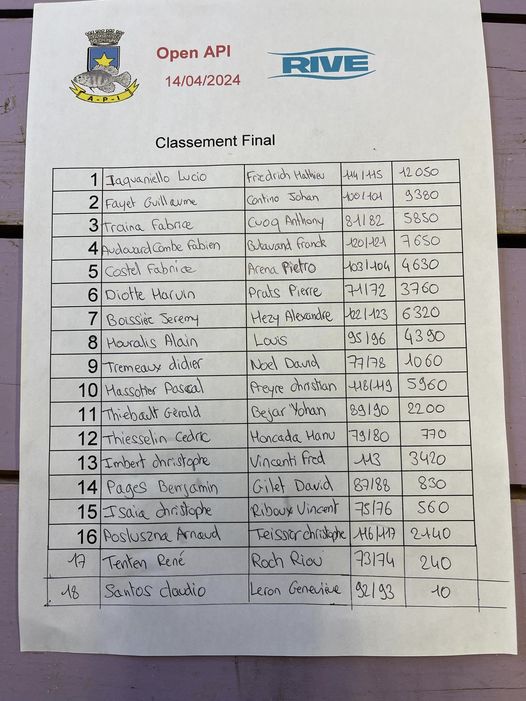 Open API
RIVE
14/04/2024
A-P-I
Classement Final
1 Iaquaniello Lucio Friedrich Mathieu 114/115 12050
2 Fayet Guillaume Contino Johan 100/101 9380
3 Traina Fabrice Cuoq Anthony 81/82 5850
4 Audouard Combe Fabien Butavand Franck 120/121 7650
5 Costel Fabrice Arena Pietro 103/104 4630
6 Diotte Marvin Prats Pierre 71/72 3760
7 Boissier Jeremy Hezy Alexandre 122/123 6320
8 Mouralis Alain Louis 95/96 4390
9 Tremeaux didier Noel David 77/78 1060
10 Massotier Pascal Preyre christian 118/119 5960
11 Thiebault Gerald Bejar Yohan 89/90 2200
12 Thiesselin Cedric Moncada Manu 79/80 770
13 Imbert christophe Vincenti Fred 113 3420
14 Pages Benjamin Gilet David 87/88 830
15 Isaia christophe Riboux Vincent 75/76 560
16 Posluszna Arnaud Teissier christophe 116/117 2140
17 Tenten René Roch Riou 73/74 240
18 Santos claudio Leron Geneviève 92/93 10